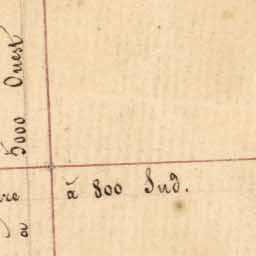 5000 Ouest
à 800 Sud.